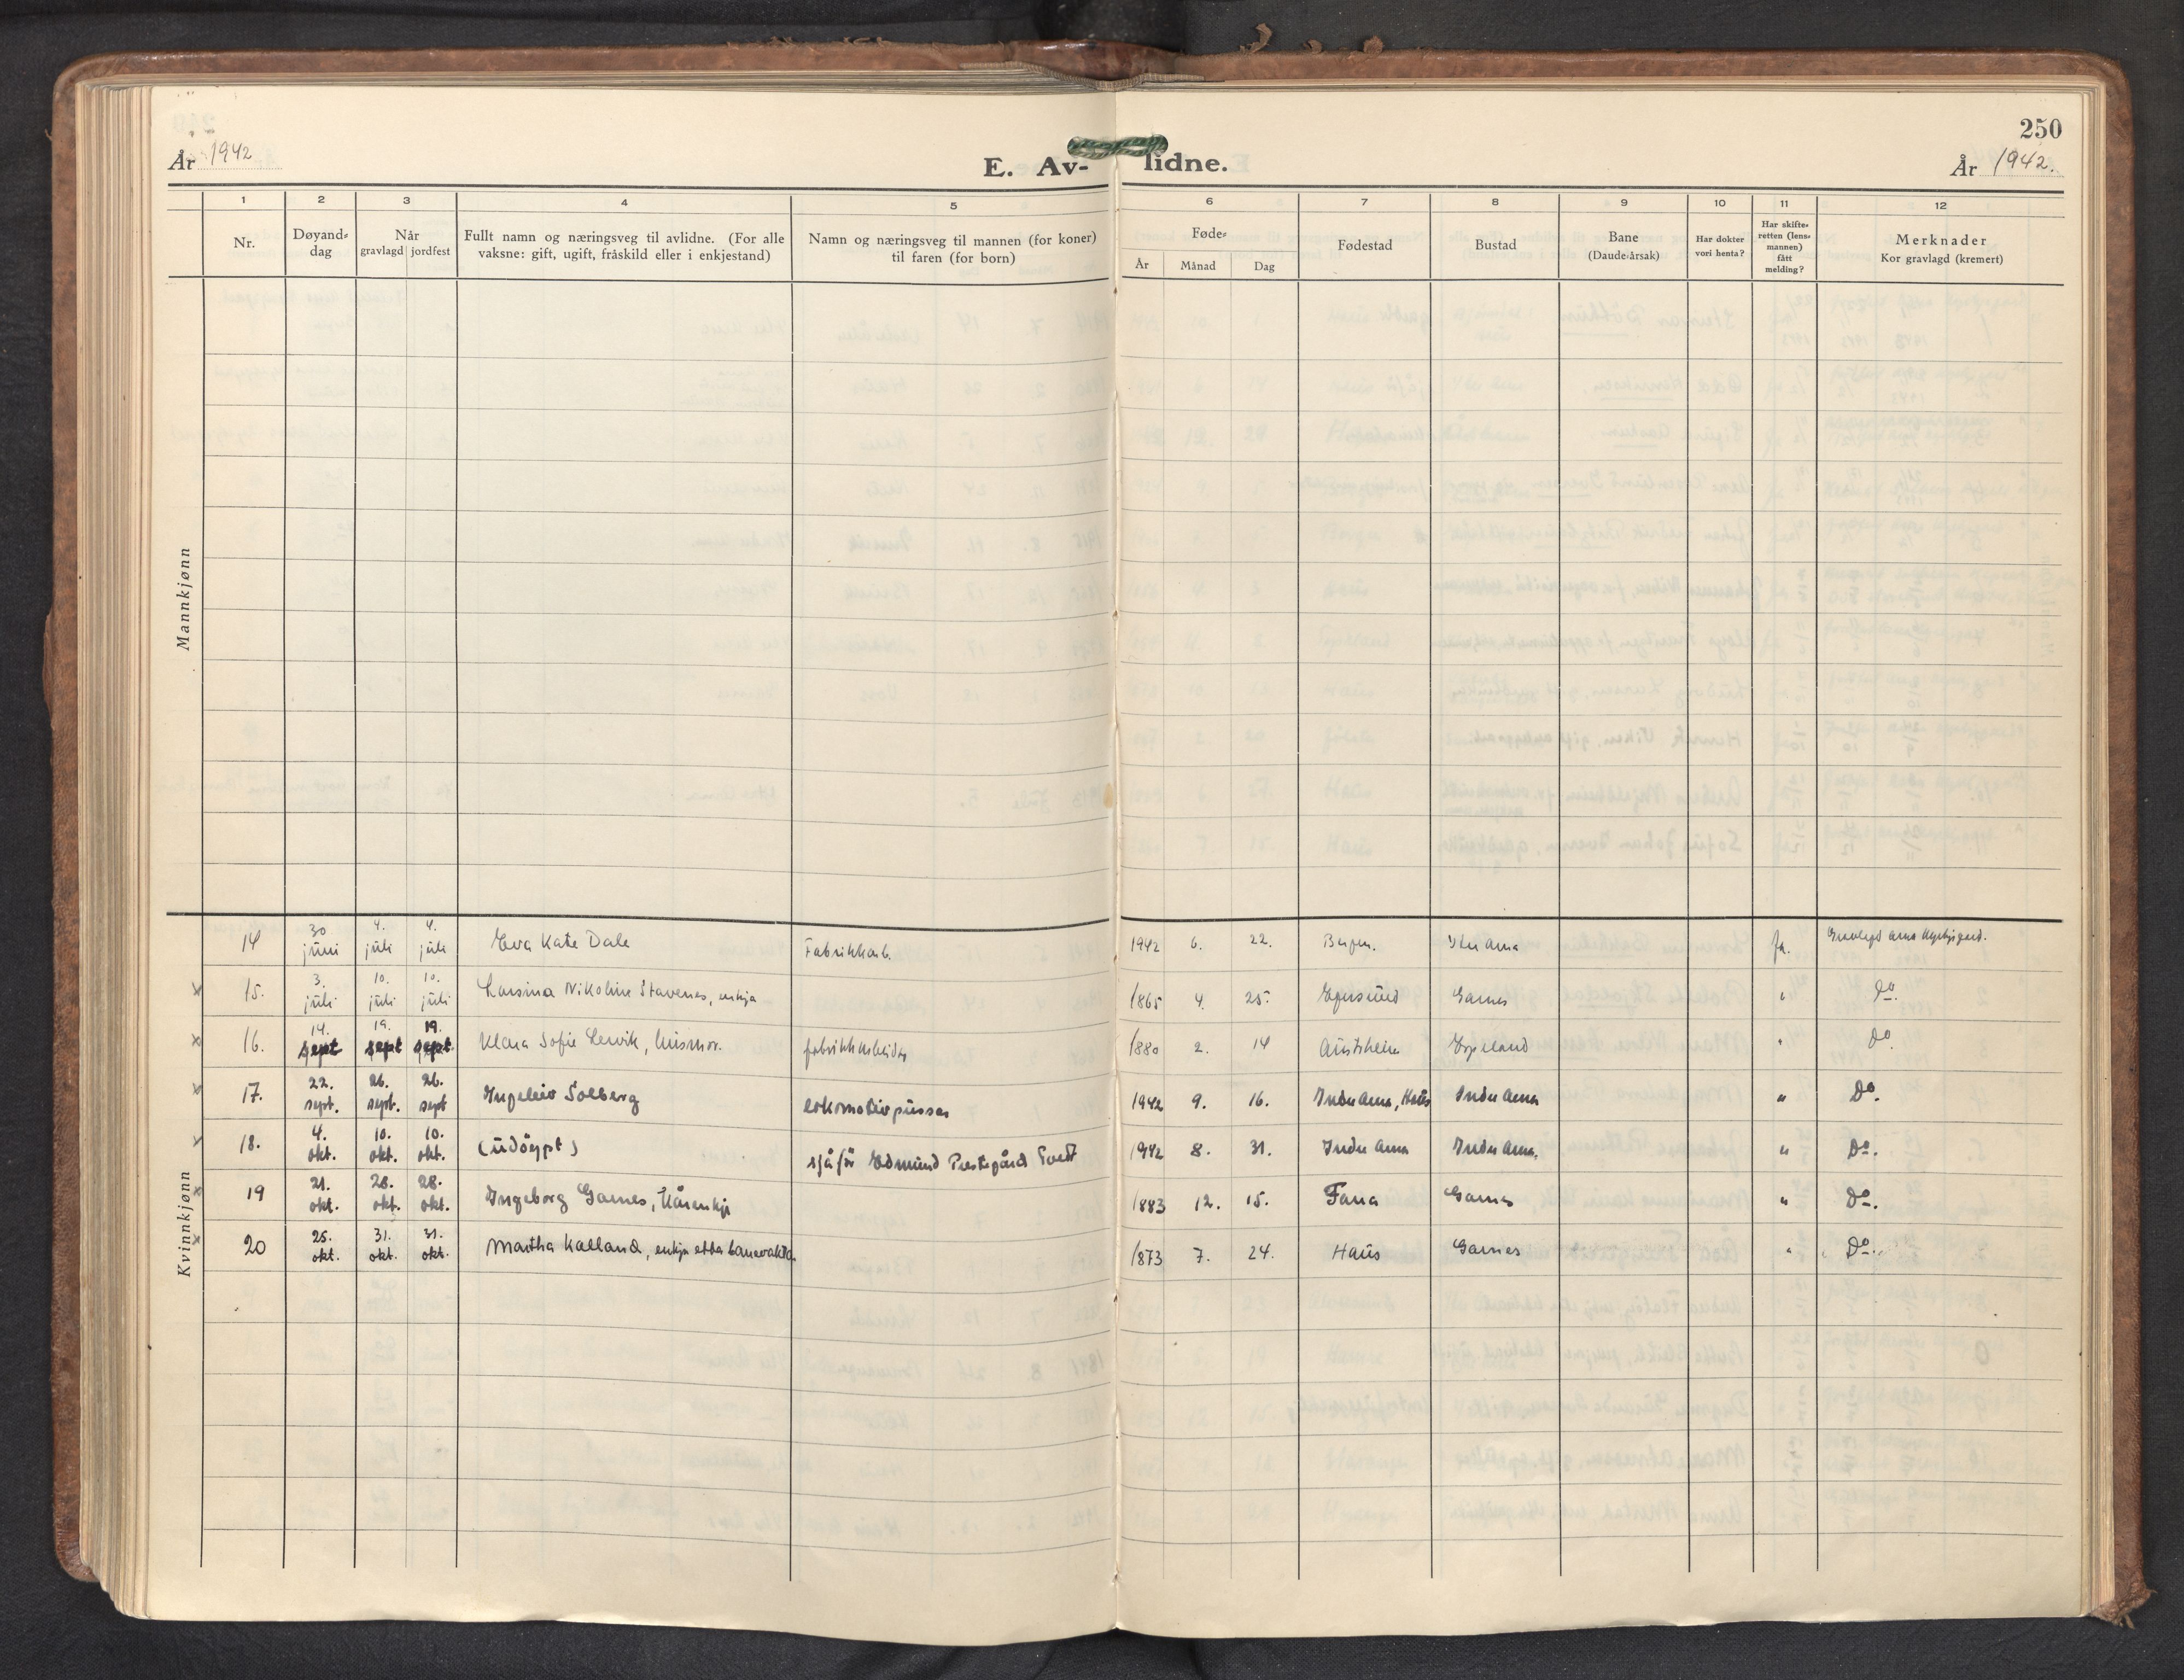 250
År 1942
E. Av- lidne.
År 1942.
1 2 3 4 5 6 7 8 9 10 11 12
Nr.
Døyand-
dag
Når
gravlagd jordfest
Fullt namn og næringsveg til avlidne. (For alle
vaksne: gift, ugift, fråskild eller i enkjestand)
Namn og næringsveg til mannen (for koner)
til faren (for born)
Føde-
År Månad Dag
Fødestad
Bustad
Bane
(Daude-årsak)
Har dokter
vori henta?
Har skifte-
retten (lens-
mannen)
fått
melding?
Merknader
Kor gravlagd (kremert)
Mannkjønn
Kvinnkjønn
14 30 juni 4. juli 4. juli Eva Kate Dale Fabrikkarb. 1942 6. 22. Bergen. Ytre Arna ja. Gravlagd Arna kyrkjegard.
x 15. 3. juli 10. juli 10. juli Larsina Nikoline Stavenes, enkja 1865 4. 25. Egersund Garnes " Do.
x 16. 14. sept 19. sept 19. sept. Klara Sofie Lervik, husmor. fabrikkarbeidar 1880 2. 14 Austrheim Espeland " Do
x 17. 22. sept. 26. sept. 26. sept Ingeleiv Solberg lokomotivpussar 1942 9. 16. Indre Arna, Haus Indre Arna " Do.
x 18. 4. okt. 10. okt. 10. okt. (udöypt) sjåfür Edmund Prestegård Tveit 1942 8. 31. Indre Arna Indre Arna. " Do.
x 19 21. okt. 28. okt. 28. okt. Ingeborg Garnes, kårenkje 1883 12. 15. Fana Garnes " Do.
x 20 25. okt. 31. okt. 31. okt. Martha Kalland, enkja etter banevakta 1873 7. 24. Haus Garnes " Do.